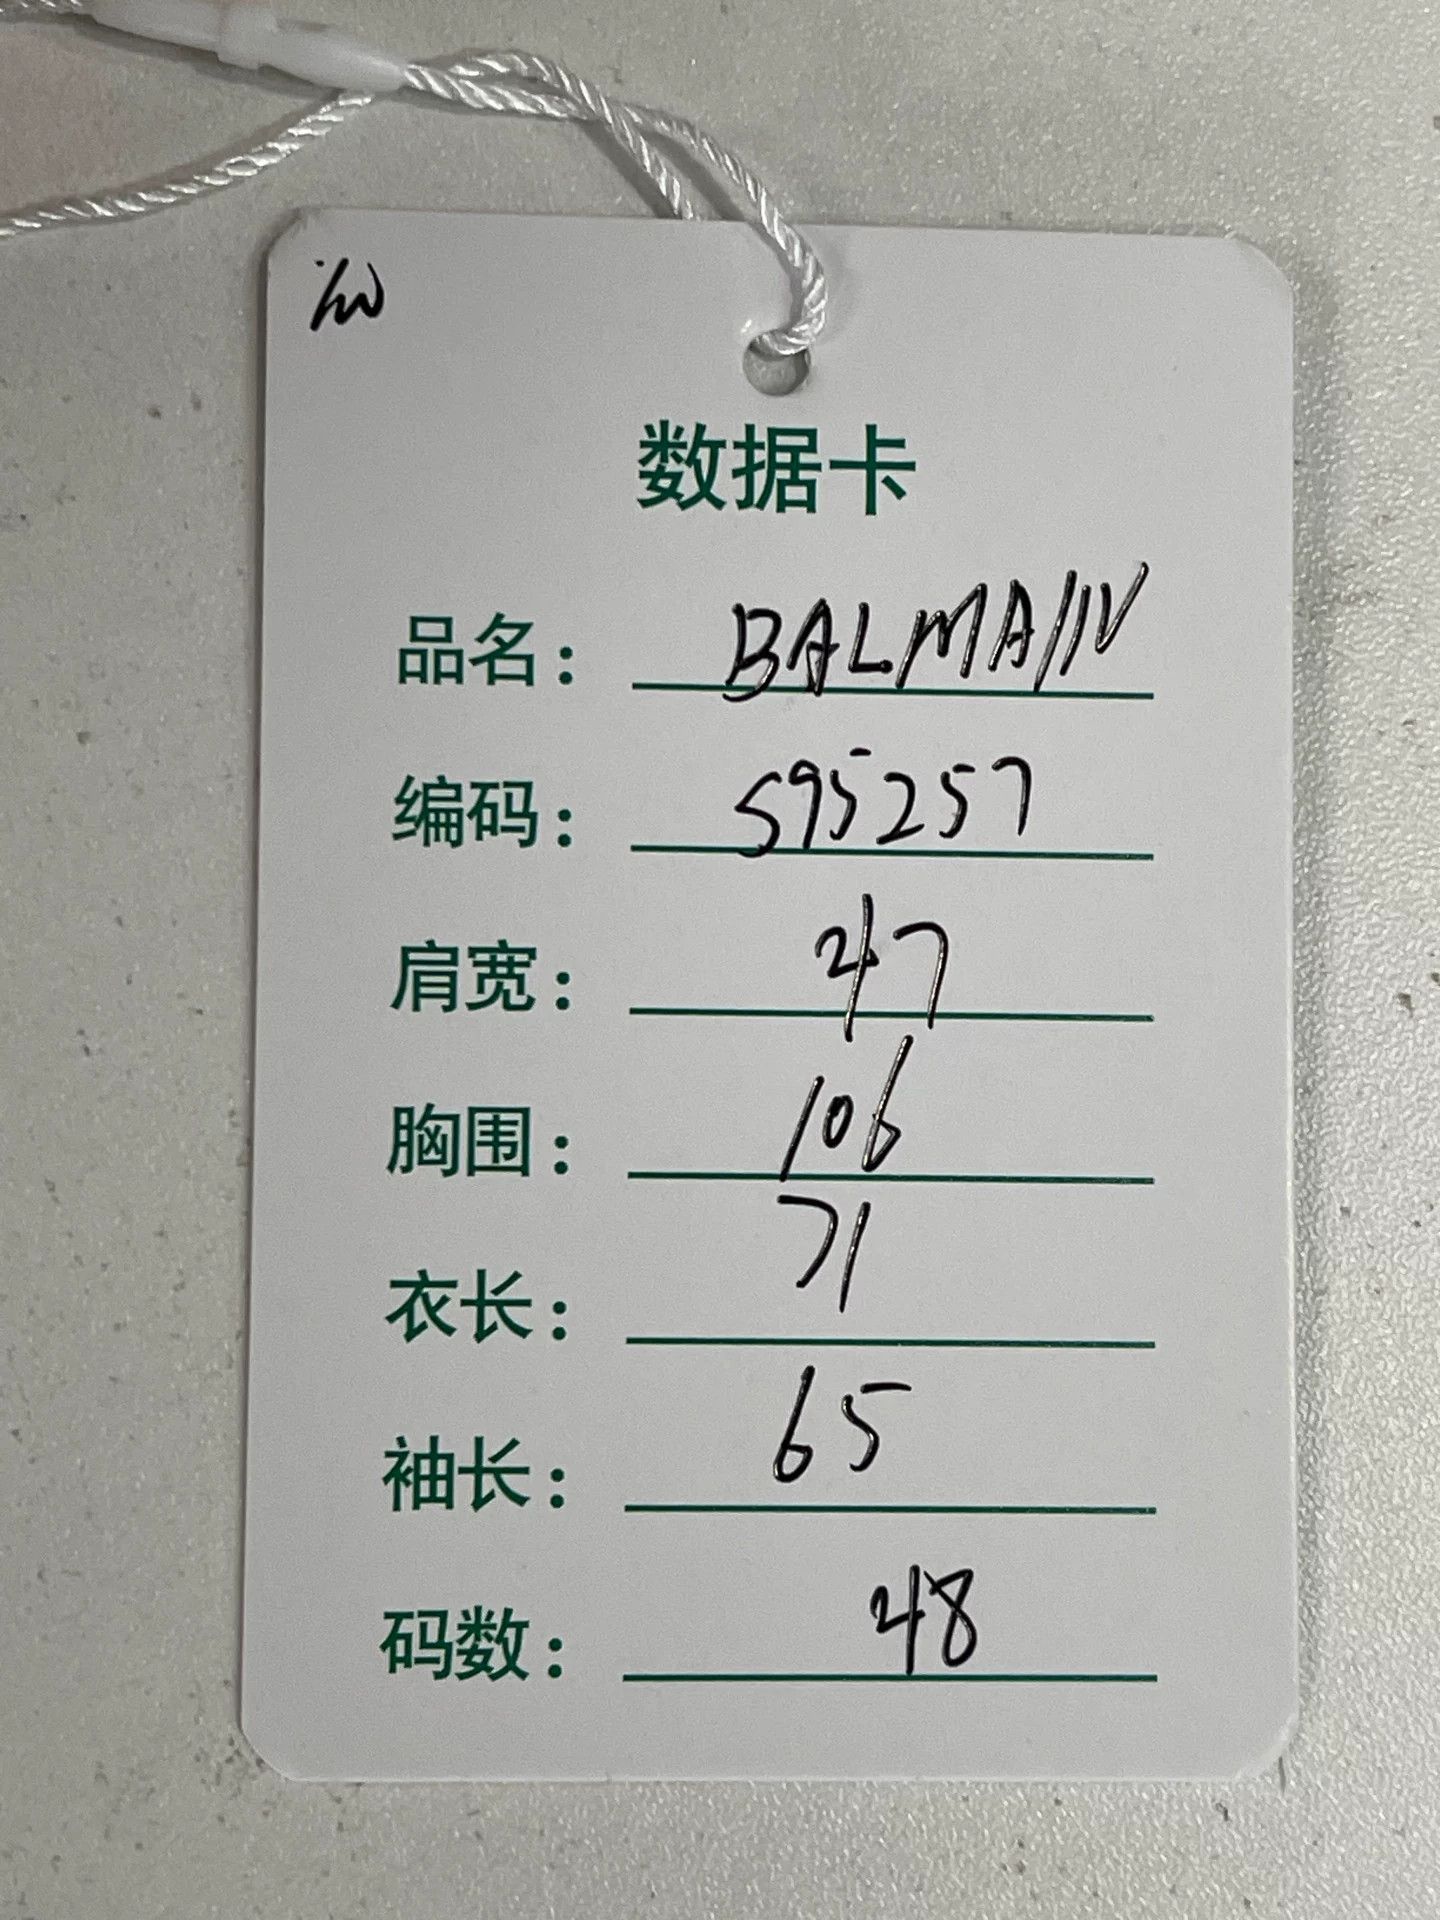 数据卡
品名： BALMAIN
编码： 595257
肩宽： 47
胸围： 106
衣长： 71
袖长： 65
码数： 48